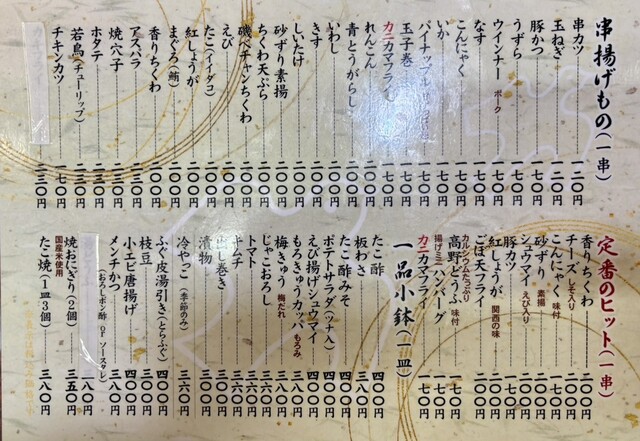 串揚げもの(一串)
串カツ 一二〇円
玉ねぎ 一二〇円
豚かつ 一七〇円
うずら 一七〇円
ウインナー ポーク 一七〇円
なす 一七〇円
こんにゃく 一七〇円
いか 一七〇円
パイナップル 一七〇円
玉子巻 一七〇円
カニカマフライ 一七〇円
れんこん 二〇〇円
青とうがらし 二〇〇円
いわし 二〇〇円
きす 二〇〇円
しいたけ 二〇〇円
砂ずり素揚 二〇〇円
ちくわ天ぷら 二〇〇円
磯べチャンちくわ 二〇〇円
えび 二〇〇円
たこ(イイダコ) 二〇〇円
紅しょうが 二〇〇円
まぐろ(鮪) 二〇〇円
香りちくわ 二〇〇円
アスパラ 二〇〇円
焼穴子 二三〇円
ホタテ 二三〇円
若鳥(チューリップ) 二三〇円
チキンカツ 一七〇円
二三〇円
定番のヒット(一串)
香りちくわ 二〇〇円
チーズ しそ入り 二〇〇円
こんにゃく 味付 一七〇円
砂ずり 素揚 二〇〇円
シュウマイ えび入り 一七〇円
豚カツ 一七〇円
紅しょうが 関西の味 二〇〇円
ごぼ天フライ 二〇〇円
カルシウムたっぷり
高野どうふ 味付 一七〇円
揚げミニハンバーグ 一七〇円
カニカマフライ 一七〇円
一品小鉢(一皿)
たこ酢 四〇〇円
板わさ
たこ酢みそ 四〇〇円
ポテトサラダ(ツナ入)
えび揚げシュウマイ
もろきゅうカッパ もろみ
梅きゅう 梅だれ
じゃこおろし
トマト
キムチ
出し巻き
漬物
冷やっこ(季節のみ)
ふぐ皮湯引き(とらふぐ) 四〇〇円
枝豆
小エビ唐揚げ 四〇〇円
メンチかつ
(おろしポン酢 or ソースタレ)
焼おにぎり(2個) 三五〇円
国産米使用
たこ焼(1皿3個) 三八〇円